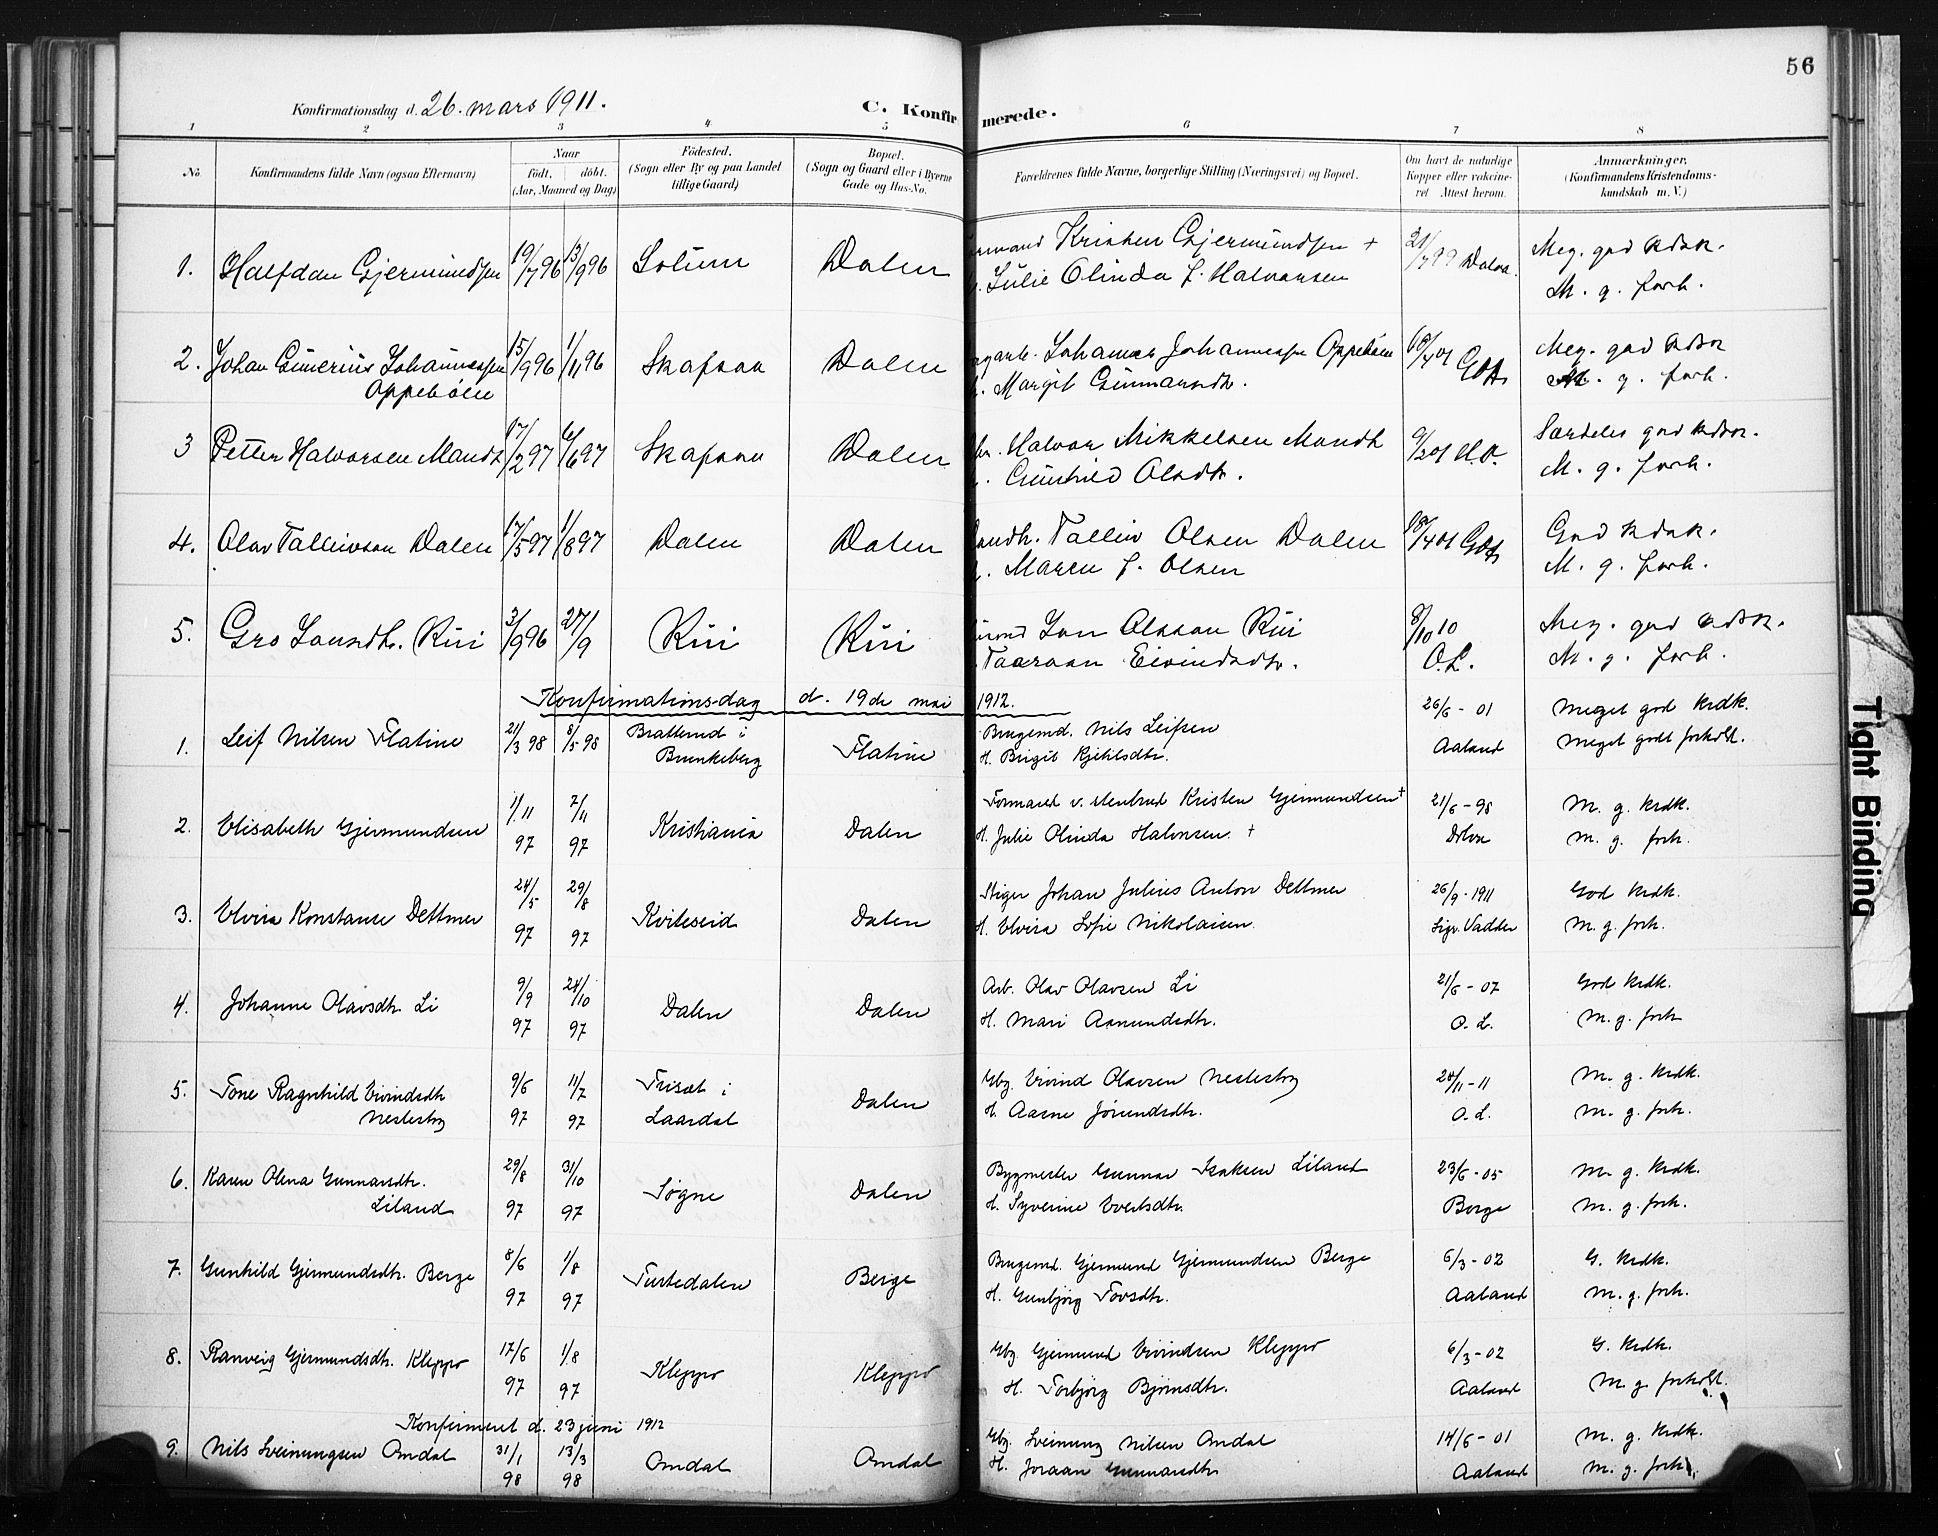 56
Konfirmationsdag d. 26. mars 1911. C. Konfirmerede.
1 2 3 4 5 6 7 8
No. Konfirmandens fulde Navn (ogsaa Efternavn) Naar født. døbt. (Aar, Maaned og Dag) Fødested. (Sogn eller By og paa Landet tillige Gaard) Bopæl. (Sogn og Gaard eller i Byerne Gade og Hus-No. Forældrenes fulde Navne, borgerlige Stilling (Næringsvei) og Bopæl. Om havt de naturlige Kopper eller vakcineret Attest herom. Anmærkninger. (Konfirmandens Kristendomskundskab m. V.)
1. Halfdan Gjermundsen 19/7 96 13/9 96 Solum Dalen Kristen Gjermundsen + 21/7 99 Meg. god kdsk.
Julie Olinda f. Halvorsen M. g. forh.
2. Johan Gunerius Johannessen 15/9 96 1/11 96 Skafsaa Dalen Johannes Johannessen Oppebøen Meg. god kdsk
Oppebøen Margit Gunnarsdtr. M. g. forh.
3 Petter Halvorsen Mandt 17/2 97 6/6 97 Skafsaa Dalen Halvor Mikkelsen Mandt 9/2 01 Særdeles god kdsk.
Gunhild Olsdtr. M. g. forh.
4. Olav Tallivson Dalen 17/5 97 1/8 97 Dalen Dalen Landh. Talliv Olsen Dalen 18/4 01 God kdsk.
Maren f. Olsen M. g. forh.
5. Gro Jonsdtr. Rui 3/9 96 27/9 Rui Rui Jon Olsson Rui 8/10 10 Meg. god kdsk.
Taaraan Eivindsdtr. O.L. M. g. forh.
Konfirmationsdag d. 19de mai 1912.
1. Leif Nilsen Flatine 21/3 98 8/5 98 Bratterud i Flatine Brugsmd. Nils Leifsen 26/6 - 01 Meget god krdk.
Brunkeberg H. Birgit Kjetilsdtr. Aaland Meget godt forhold.
2. Elisabeth Gjermundsen 1/11 97 7/11 97 Kristiania Dalen Formand v. Kristen Gjermundsen + 21/6 - 98 M. g. krdk.
H. Julie Olinda Halvorsen. + M. g. forh.
3. Elvira Konstanse Dettmer 24/5 97 29/8 97 Kviteseid Dalen Stiger Johan Julius Anton Dettmer 26/9 - 1911 God krdk.
H. Elvira Sofie Nikolaisen. Sigv. Vadder M. g. forh.
4. Johanne Olavsdtr. Li 9/9 97 24/10 97 Dalen Dalen Arb. Olav Olavsen Li 21/6 - 07 God krdk.
H. Mari Aamundsdtr. O. L. M. g. forh
5. Tone Ragnhild Eivindsdtr. 9/6 97 11/7 97 Trisæt i Dalen Gbg. Eivind Olavsen Nesterbø 24/11 - 11 M. g. krdk.
Laardal H. Aasne Jørundsdtr. O. L. M. g. forh.
6. Karen Olena Gunnarsdtr. 29/8 97 31/10 97 Søgne Dalen Bygmester Gunnar Isaksen Liland 23/6 - 05 M. g. krdk.
Liland H. Syverine Evertsdtr. Borge M. g. forh.
7. Gunhild Gjermundsdtr. Berge 8/6 97 1/8 97 Turtedalen Berge Brugsmd. Gjermund Gjermundsen Berge 6/3 - 02 G. krdk.
H. Gunbjørg Tovsdtr. Aaland M. g. forh.
8. Ranveig Gjermundsdtr. Kleppo 17/6 97 1/8 97 Kleppo Kleppo Gbg. Gjermund Eivindsen Kleppo 6/3 - 02 G. krdk.
H. Torbjørg Bjørnsdtr. Aaland M. g. forhold.
Konfirmeret d. 23 juni 1912
9. Nils Sveinungsen Omdal 31/1 98 13/3 98 Omdal Omdal Gbg. Sveinung Nilsen Omdal 14/6 - 01 M. g. krdk.
H. Joraan Gunnarsdtr. Aaland M. g. forh.
Tight Binding